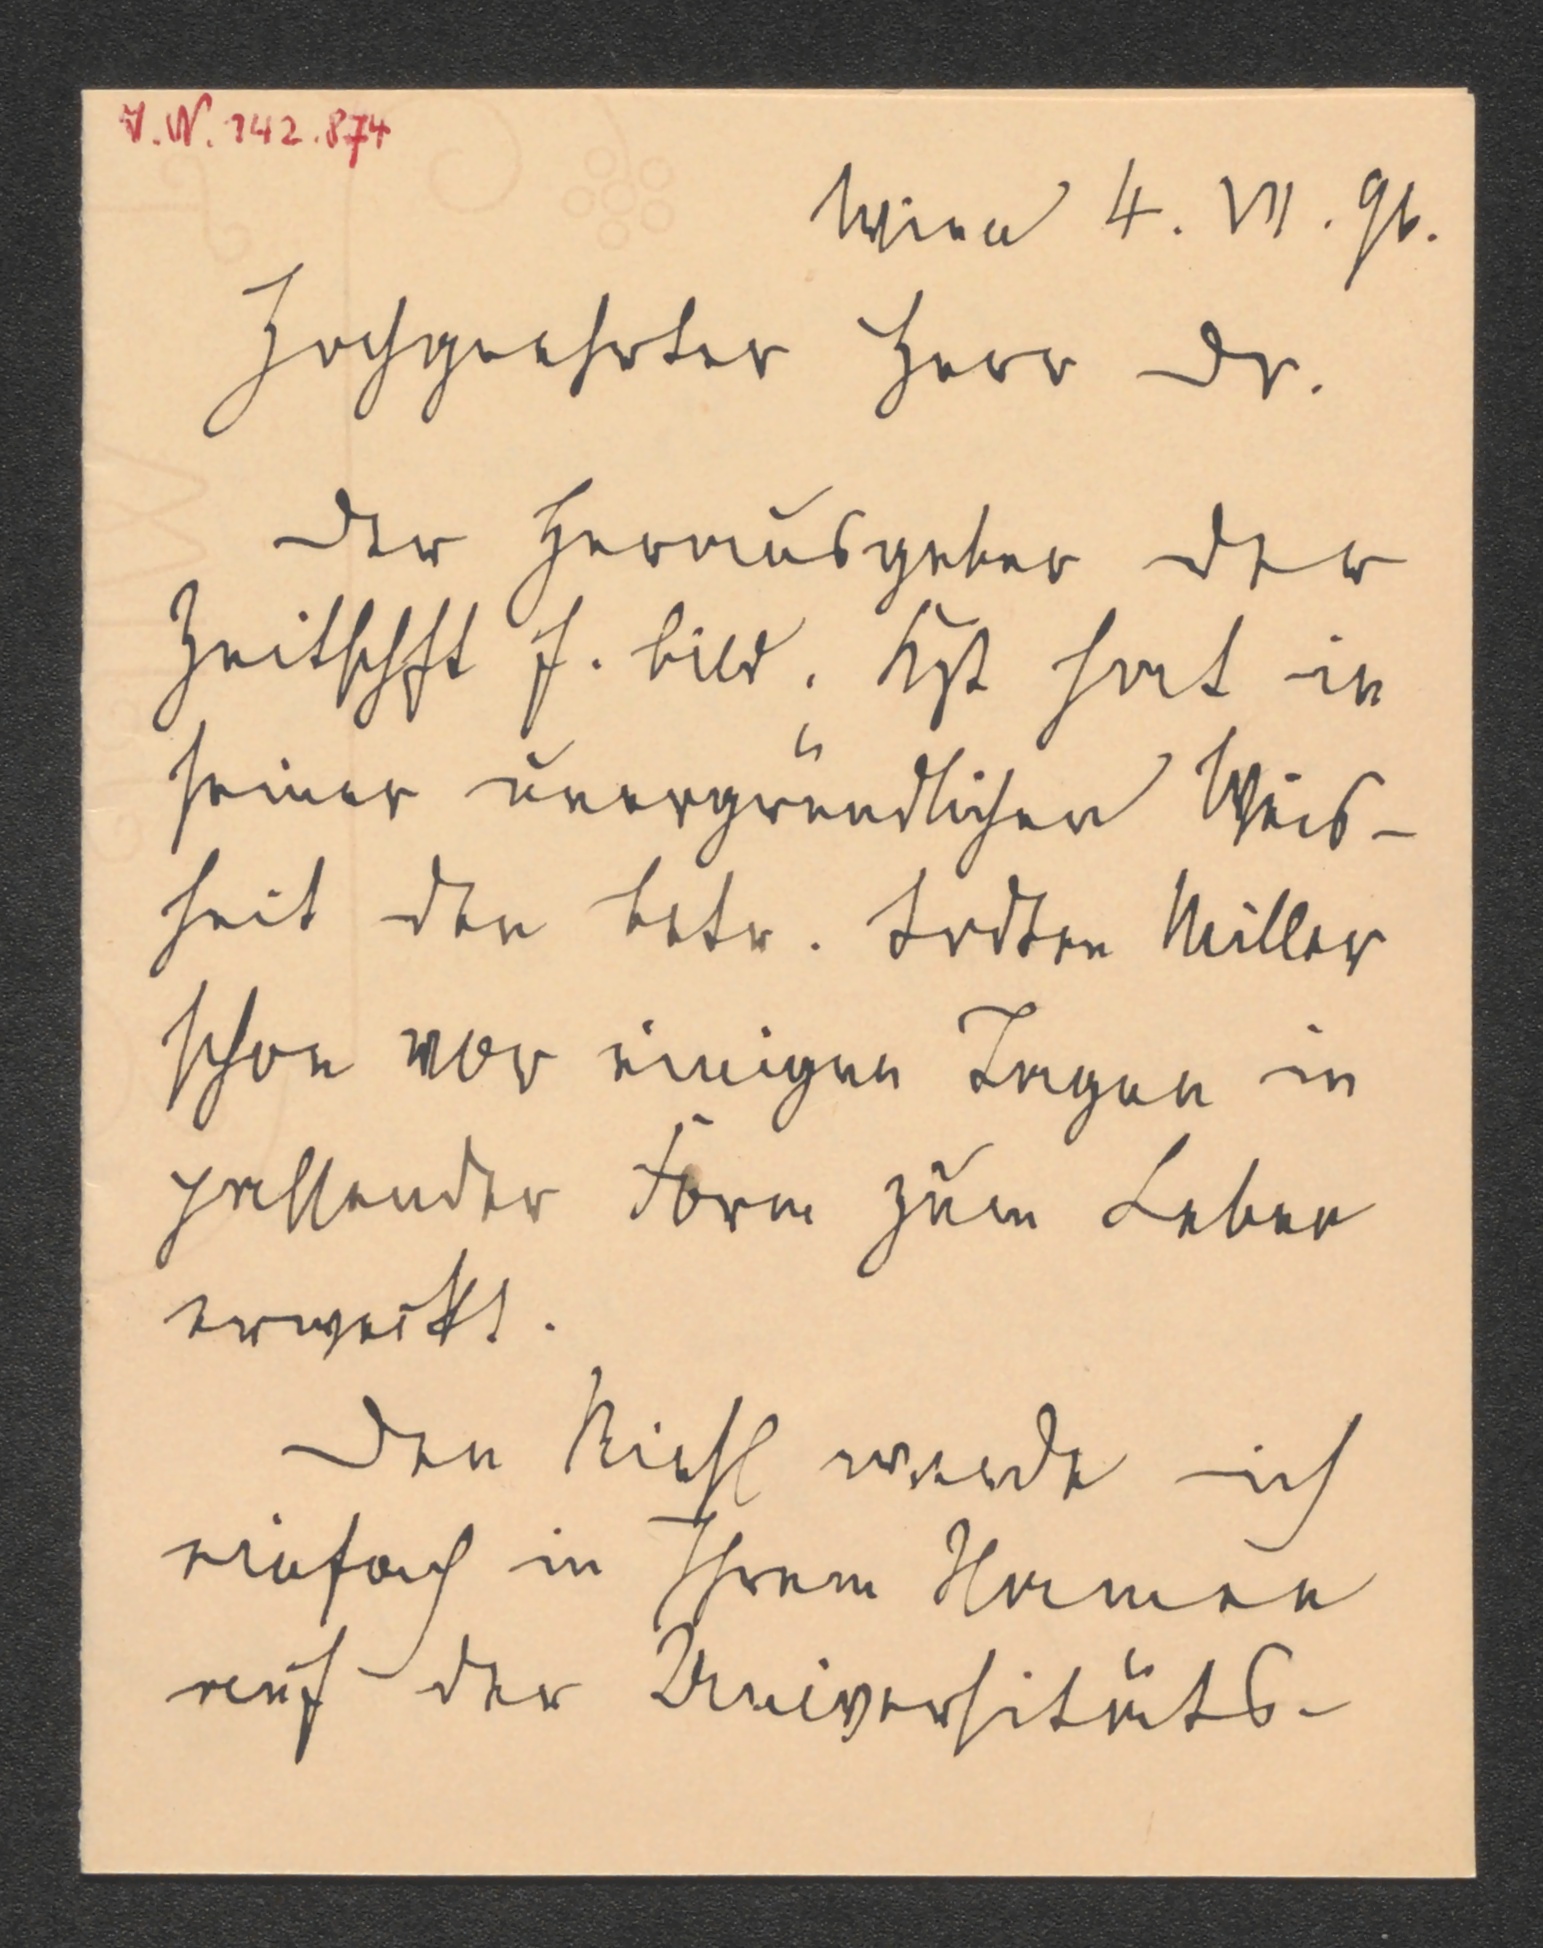 I.N. 142.874
Wien 4. VII. 96.
Hochgeehrter Herr Dr.
Der Herausgeber der
Zeitschft f. bild. Kst hat in
seiner unergründlichen Weis-
heit den betr. todten Müller
schon vor einigen Tagen in
passender Form zum Leben
erweckt.
Den Riehl werde ich
einfach in Ihrem Namen
auf der Universitäts-